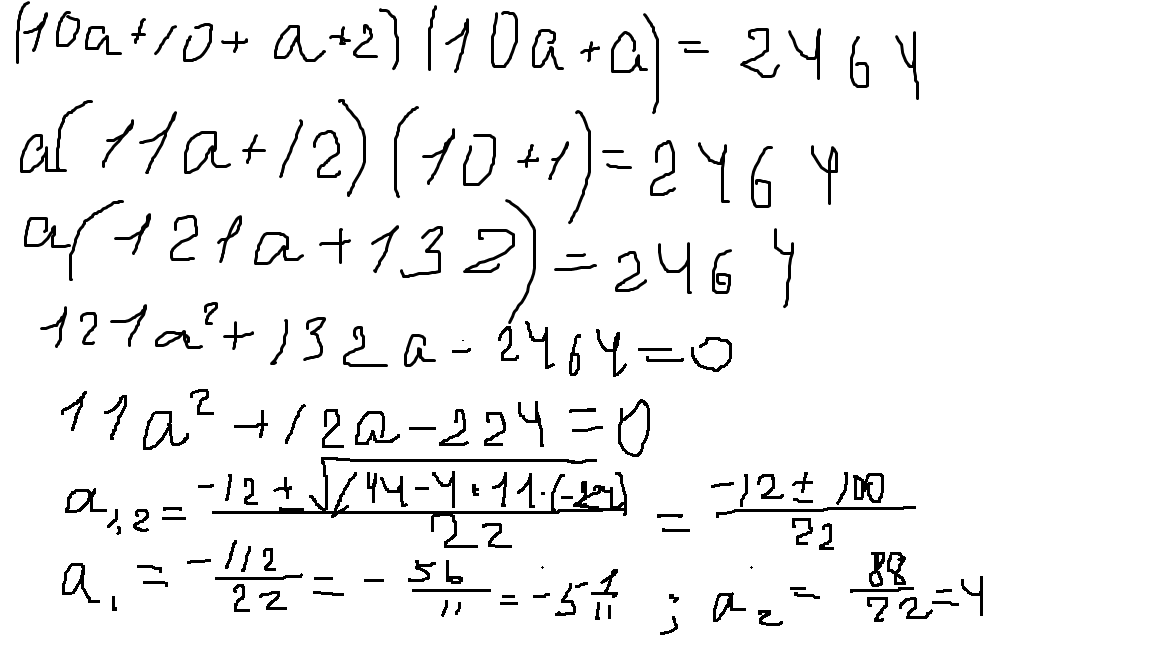 (10a+10+a+2)(10a+a)=2464
a(11a+12)(10+1)=2464
a(121a+132)=2464
121a²+132a-2464=0
11a²+12a-224=0
a₁,₂ = (-12±√(144-4·11·(-224)))/22 = (-12±100)/22
a₁ = -112/22 = -56/11 = -5 1/11 ; a₂ = 88/22 = 4